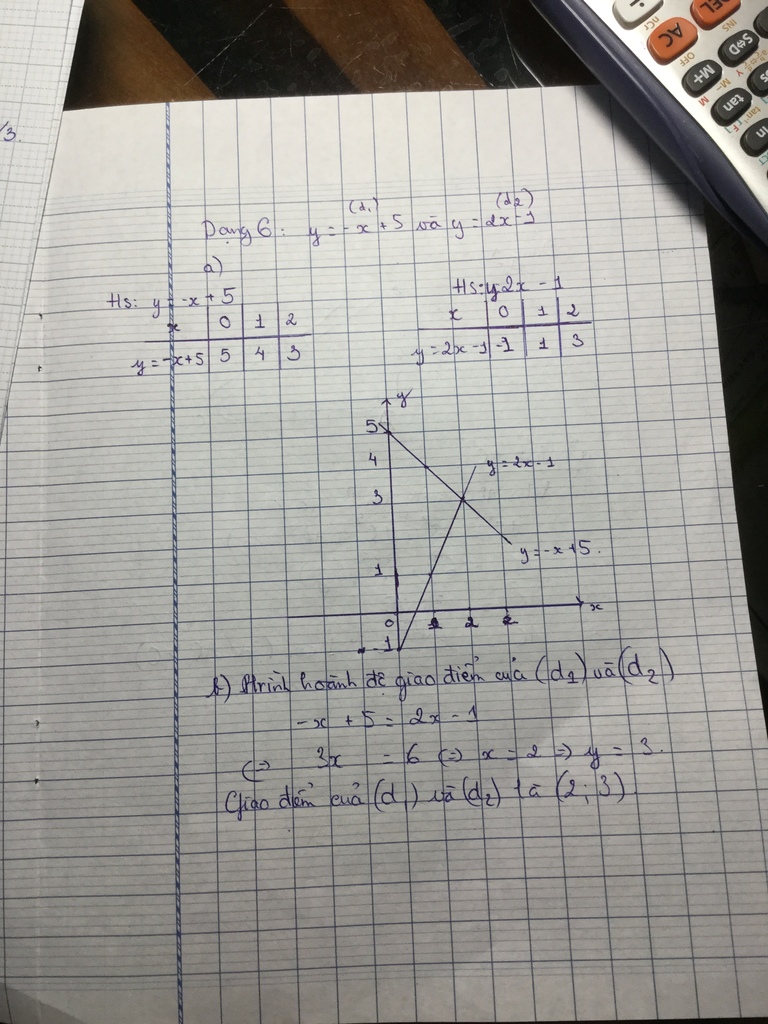 /3.
DEL
AC
OFF
INS
nCr
S⇔D
M+
M-
M
tan
Dạng 6: y = -x + 5 và y = 2x - 1
(d1) (d2)
a)
Hs: y = -x + 5
x 0 1 2
y = -x+5 5 4 3
Hs: y 2x - 1
x 0 1 2
y = 2x - 1 -1 1 3
y
5
4
y = 2x - 1
3
y = -x + 5.
1
x
0 2
-1
b) Ptrình hoành độ giao điểm của (d1) và (d2)
-x + 5 = 2x - 1
(=) 3x = 6 (=) x = 2 => y = 3.
Giao điểm của (d) và (d2) là (2; 3)